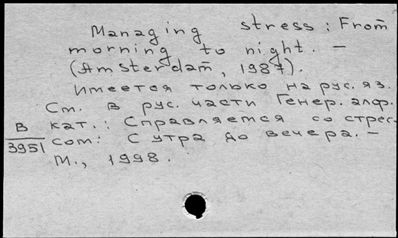 Managing stress: From
morning to night. –
(Amsterdam, 1987).
Имеется только на рус. яз.
См. в рус. части Генер. алф.
кат.: Справляется со стрес-
сом: С утра до вечера. –
М., 1998.
В
3951